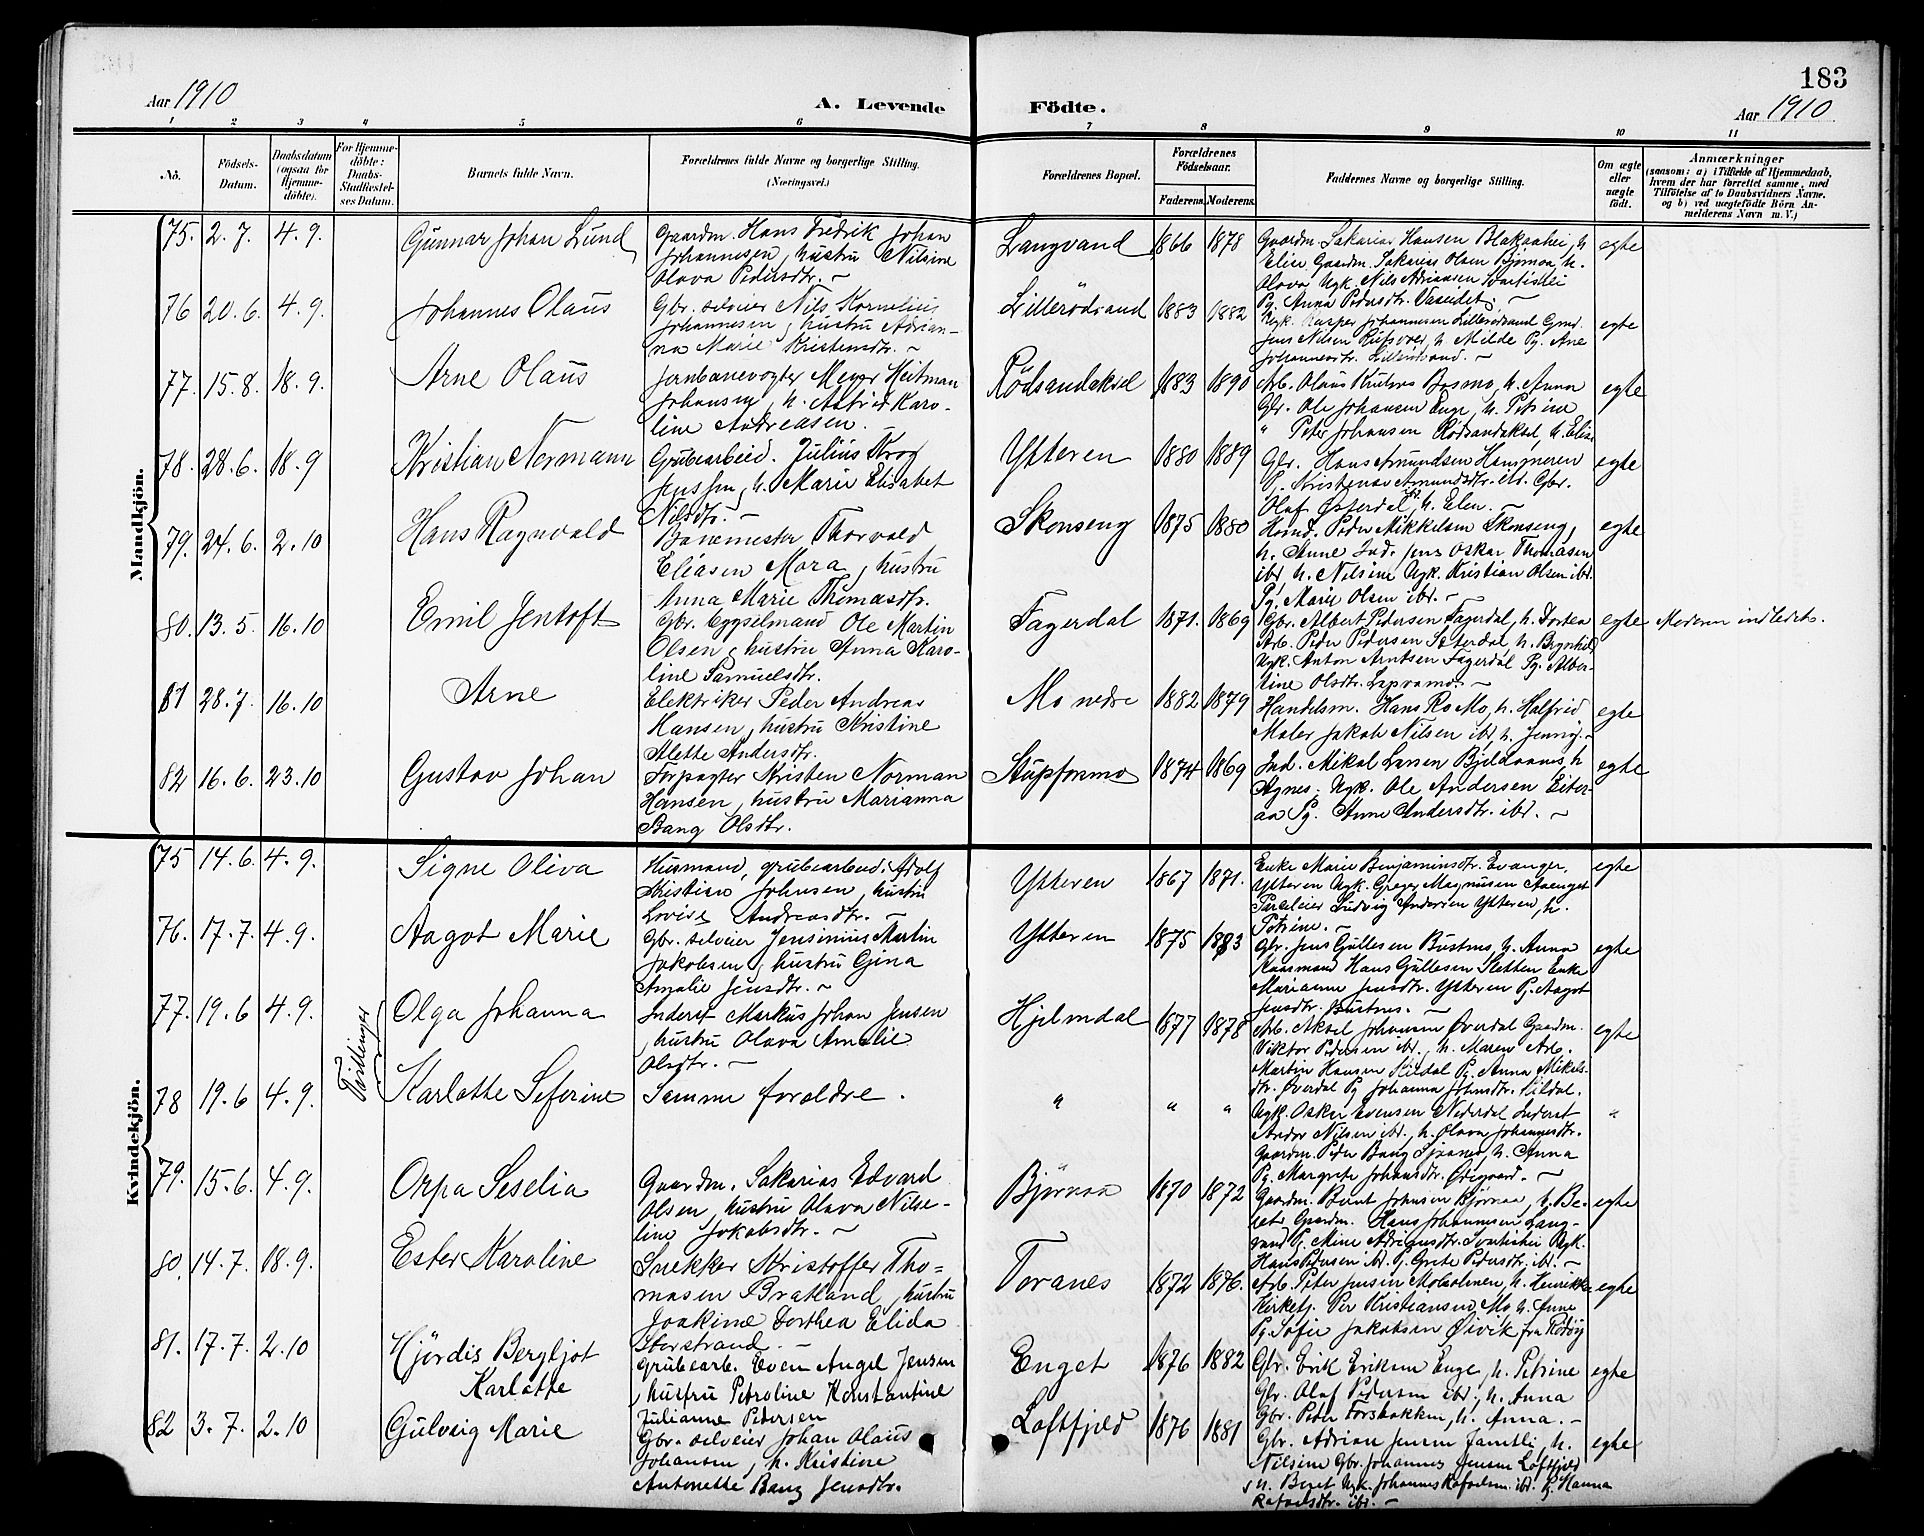 183
Aar 1910
A. Levende Födte.
Aar 1910
1 2 3 4 5 6 7 8 9 10 11
No.
Födsels-Datum.
Daabsdatum (ogsaa for Hjemme-döbte).
For Hjemme-döbte: Daabs-Stadfæstel-ses Datum.
Barnets fulde Navn.
Forældrenes fulde Navne og borgerlige Stilling. (Næringsvei.)
Forældrenes Bopæl.
Forældrenes Födselsaar.
Faderens. Moderens.
Faddernes Navne og borgerlige Stilling.
Om ægte eller uægte födt.
Anmærkninger
(saasom: a) i Tilfælde af Hjemmedaab,
hvem der har forrettet samme, med
Tilföielse af to Daabsvidners Navne,
og b) ved uægtefödte Börn An-
melderens Navn m. V.)
Mandkjön.
75. 2.7. 4.9. Gunnar Johan Lund
Gaardm. Hans Fredrik Johan
Johannesen, hustru Nilsine
Olava Pedersdtr. —
Langvand 1866 1878
Gaardm. Sakarias Hansen Blakaahei, h.
Elise Gaardm. Sakarias Olsen Bjørnaa h.
Olava Ugk. Nils Adriansen Svartishei
Pg. Anna Pedersdtr. Vaseidet. —
egte
76 20.6. 4.9. Johannes Olaus
Gbr. selveier Nils Kornelius
Johannesen, hustru Adrian-
na Marie Kristensdtr. —
Lillerödvand 1883 1882
Ugk. Kasper Johannesen Lillerödvand Gmd.
Jens Nilsen h. Milde Pg. Ane
Johannesdtr. Lillerödvand. —
egte
77. 15.8. 18.9. Arne Olaus
Jernbanevogter Meyer Heitman
Johansen, h. Astrid Karo-
line Andreasen.
Rödsandaksel 1883 1890
Arb. Olaus Knutsen Bosmo, h. Anna
Gbr. Ole Johansen Enge, h. Petrine
" Peter Johansen Rödsandaksel, h. Elise
egte
78. 28.6. 18.9 Kristian Normann
Grubearbeid. Julius Krog
Jenssen, h. Marie Elisabet
Nilsdtr. —
Ytteren 1880 1889
Gbr. Hans Amundsen Hammeren
Pg. Kristense Amundsdtr. ibd. Gbr.
Olaf Østerdal, h. Elen. —
egte
79. 24.6. 2.10 Hans Ragnvald
Banemester Thorvald
Eliasen Mora, hustru
Anna Marie Thomasdtr.
Skonseng 1875 1880
Husmd. Peder Mikkelsen Skonseng,
h. Anne Ind. Jens Oskar Thomasen
ibd, h. Nilsine Ugk. Kristian Olsen ibd.
Pg. Marie Olsen ibd. —
egte
80. 13.5. 16.10 Emil Jentoft
Gbr. Bygselmand Ole Martin
Olsen, hustru Anna Karo-
line Samuelsdtr.
Fagerdal 1871. 1869
Gbr. Albert Pedersen Fagerdal, h. Dortea
Arb. Peder Pedersen Sæterdal h. Brynhild
Ugk. Anton Arntsen Fagerdal Pg. Alber-
tine Olsdtr. —
egte Moderen indledet.
81 28.7. 16.10 Arne
Elektriker Peder Andreas
Hansen, hustru Kristine
Alette Andersdtr.
Mo nedre 1882 1879
Handelsm. Hans Ro Mo, h. Halfrid
Maler Jakob Nilsen ibd, h. Jenny. —
egte
82 16.6. 23.10 Gustav Johan
Forpagter Kristen Norman
Hansen, hustru Marianna
Bang Olsdtr.
Stupforsmo 1874 1869
Ind. Mikal Larsen Bjeldaanes, h
Agnes. Ugk. Ole Andersen Eiter-
aa Pg. Anne Andersdtr. ibd. —
egte
Kvindekjön.
75 14.6. 4.9. Signe Oliva
Husmand, grubearbeid. Adolf
Kristian Johnsen, hustru
Lovise Andreasdtr. —
Ytteren 1867 1871.
Enke Marie Benjaminsdtr. Evanger,
Ytteren Ugk. Greger Magnusen Aaenget
Parceleier Ludvig Andersen Ytteren, h.
Petrine. —
egte
76. 17.7. 4.9. Aagot Marie
Gbr. selveier Jensinius Martin
Jakobsen, hustru Gina
Amalie Jensdtr. —
Ytteren 1875 1883
Gbr. Jens Gullesen Bustnes, h. Anna
Kaarmand Hans Gullesen Sletten Enke
Marianne Jensdtr. Ytteren Pg. Aagot
Jensdtr. Bustnes. —
egte
77. 19.6 4.9. Tvillinger Olga Johanna
Inderst Markus Johan Jensen
, hustru Olava Amalie
Olsdtr. —
Hjelmdal 1877 1878
Arb. Aksel Johansen Øverdal Gaardm.
Viktor Pedersen ibd., h. Maren Arb.
Martin Hansen Kildal Pg. Anna Mikels-
dtr. Øverdal Pg Johanna Johnsdtr. Kildal.
egte
78 19.6 4.9. Karlotte Seferine
Samme foraldre.
" " "
Ugk. Oskar Evensen Nederdal Inderst
Andor Nilsen ibd., h. Olava Johannesdtr.
Gaardm. Peder Bang h. Anna
Pg. Margrete Johansdtr. Ødegaard. —
"
79. 15.6. 4.9. Orpa Seselia
Gaardm. Sakarias Edvard
Olsen, hustru Olava Nilse-
line Jakobsdtr. —
Bjørnaa 1870 1872
Gaardm. Bernt Johnsen Bjørnaa, h. Be-
rete Gaardm. Hans Johannesen Lang-
vand Pg. Mine Adriansdtr. Svartishei Ugk.
Hans Pedersen ibd. Pg. Grete Pedersdtr. ibd. —
egte
80. 14.7. 18.9. Ester Karoline
Snekker Kristoffer Tho-
masen Bratland, hustru
Joakime Dorthea Elida
Storstrand. —
Toranes 1872 1876.
Arb. Peter Jensen Moholmen, h. Henrikke
Kirketj. Per Kristiansen Mo h. Anne
Pg. Sofie Jakobsen Øivik fra Rödöy
egte
81. 17.7. 2.10 Hjördis Bergljot
Karlotte
grubearb. Even Angel Jensen
, hustru Petroline Konstantine
Julianne Pedersen
Enget 1876 1882
Gbr. Erik Eriksen Enge, h. Petrine
Gbr. Olaf Pedersen ibd., h. Anna
Gbr. Peder Forsbakken, h. Anna. —
egte
82 3.7. 2.10 Gulveig Marie
Gbr. selveier Johan Olaus
Johansen, h. Kristine
Antonette Bang Jensdtr.
Loftfjeld 1876 1881
Gbr. Adrian Jensen Jamtli, h.
Nilsine Gbr. Johannes Jensen Loftfjeld
, h. Beret Ugk. Johannes Rafaelsen ibd. Pg. Hanna
Rafaelsdtr. ibd. —
egte